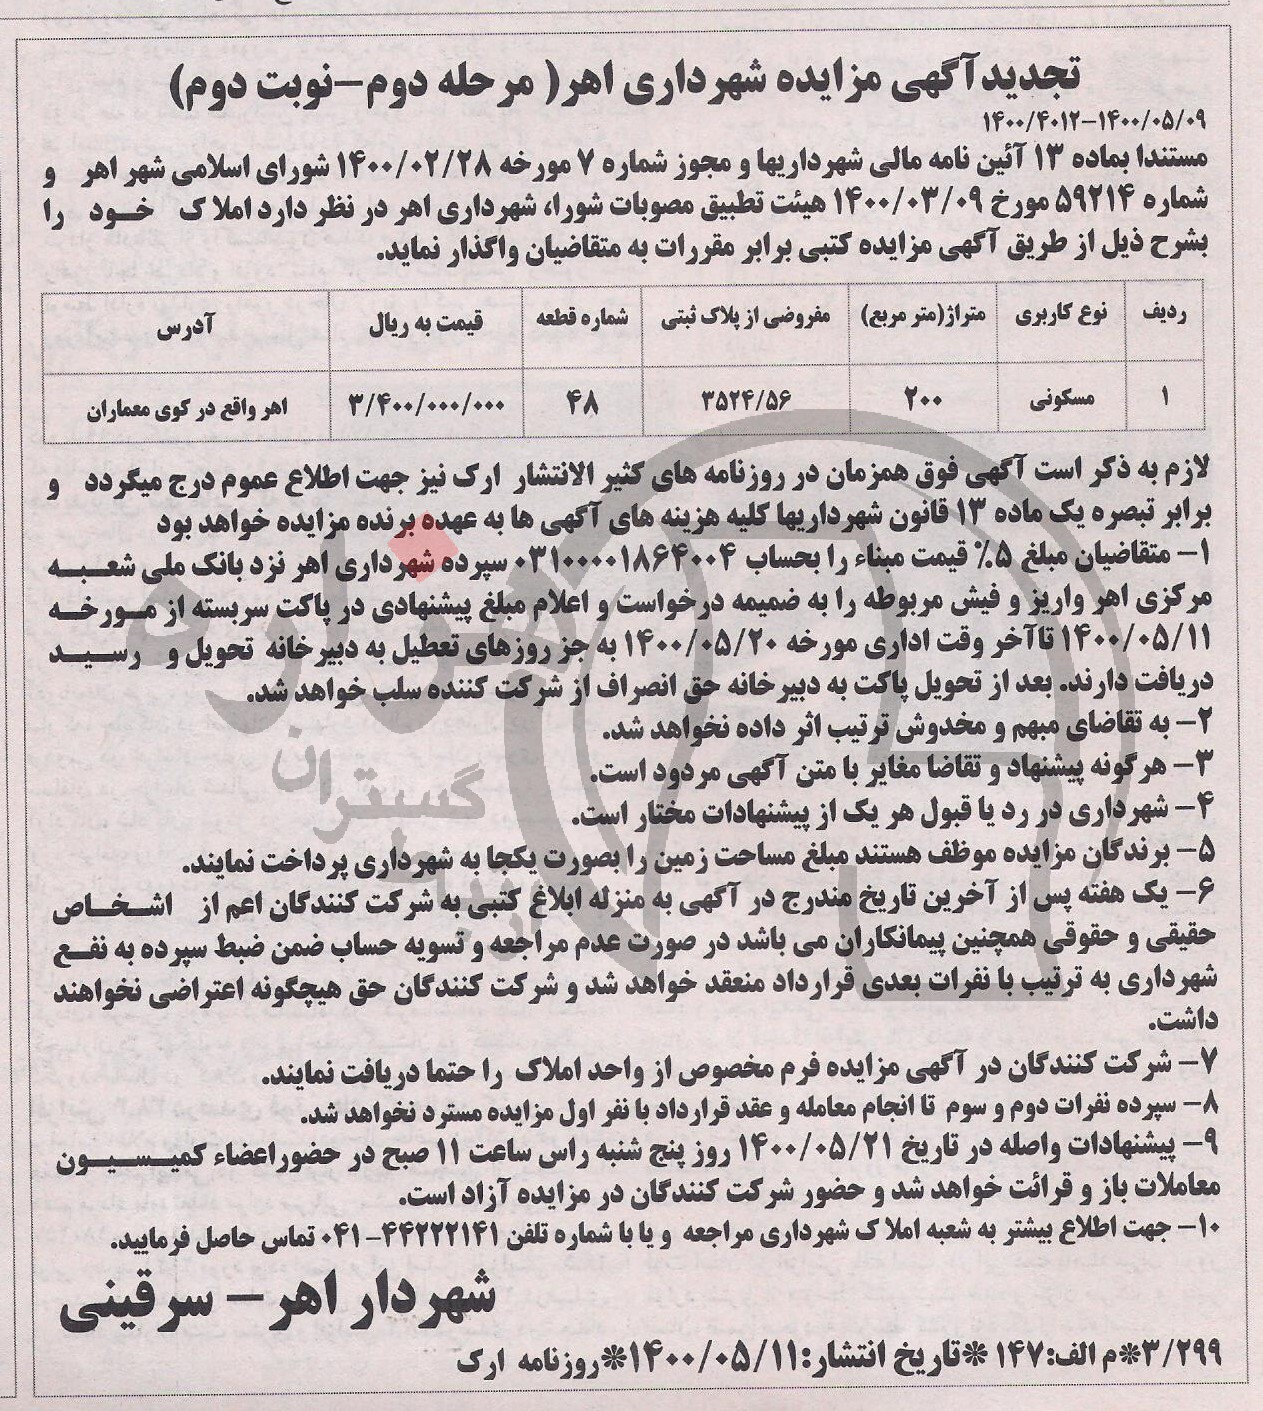 تجدیدآگهی مزایده شهرداری اهر( مرحله دوم-نوبت دوم)
۱۴۰۰/۰۵/۰۹-۱۴۰۰/۴۰۱۲
مستندا بماده ۱۳ آئین نامه مالی شهرداریها و مجوز شماره ۷ مورخه ۱۴۰۰/۰۲/۲۸ شورای اسلامی شهر اهر و
شماره ۵۹۲۱۴ مورخ ۱۴۰۰/۰۳/۰۹ هیئت تطبیق مصوبات شورا، شهرداری اهر در نظر دارد املاک خود را
بشرح ذیل از طریق آگهی مزایده کتبی برابر مقررات به متقاضیان واگذار نماید.
ردیف نوع کاربری متراژ(متر مربع) مفروضی از پلاک ثبتی شماره قطعه قیمت به ریال آدرس
۱ مسکونی ۲۰۰ ۳۵۲۴/۵۶ ۴۸ ۳/۴۰۰/۰۰۰/۰۰۰ اهر واقع در کوی معماران
لازم به ذکر است آگهی فوق همزمان در روزنامه های کثیر الانتشار ارک نیز جهت اطلاع عموم درج میگردد و
برابر تبصره یک ماده ۱۳ قانون شهرداریها کلیه هزینه های آگهی ها به عهده برنده مزایده خواهد بود
۱- متقاضیان مبلغ ۵% قیمت مبناء را بحساب ۰۳۱۰۰۰۰۱۸۶۴۰۰۴ سپرده شهرداری اهر نزد بانک ملی شعبه
مرکزی اهر واریز و فیش مربوطه را به ضمیمه درخواست و اعلام مبلغ پیشنهادی در پاکت سربسته از مورخه
۱۴۰۰/۰۵/۱۱ تاآخر وقت اداری مورخه ۱۴۰۰/۰۵/۲۰ به جز روزهای تعطیل به دبیرخانه تحویل و رسید
دریافت دارند. بعد از تحویل پاکت به دبیرخانه حق انصراف از شرکت کننده سلب خواهد شد.
۲- به تقاضای مبهم و مخدوش ترتیب اثر داده نخواهد شد.
۳- هرگونه پیشنهاد و تقاضا مغایر با متن آگهی مردود است.
۴- شهرداری در رد یا قبول هر یک از پیشنهادات مختار است.
۵- برندگان مزایده موظف هستند مبلغ مساحت زمین را بصورت یکجا به شهرداری پرداخت نمایند.
۶- یک هفته پس از آخرین تاریخ مندرج در آگهی به منزله ابلاغ کتبی به شرکت کنندگان اعم از اشخاص
حقیقی و حقوقی همچنین پیمانکاران می باشد در صورت عدم مراجعه و تسویه حساب ضمن ضبط سپرده به نفع
شهرداری به ترتیب با نفرات بعدی قرارداد منعقد خواهد شد و شرکت کنندگان حق هیچگونه اعتراضی نخواهند
داشت.
۷- شرکت کنندگان در آگهی مزایده فرم مخصوص از واحد املاک را حتما دریافت نمایند.
۸- سپرده نفرات دوم و سوم تا انجام معامله و عقد قرارداد با نفر اول مزایده مسترد نخواهد شد.
۹- پیشنهادات واصله در تاریخ ۱۴۰۰/۰۵/۲۱ روز پنج شنبه راس ساعت ۱۱ صبح در حضوراعضاء کمیسیون
معاملات باز و قرائت خواهد شد و حضور شرکت کنندگان در مزایده آزاد است.
۱۰- جهت اطلاع بیشتر به شعبه املاک شهرداری مراجعه و یا با شماره تلفن ۴۴۲۲۲۱۴۱-۰۴۱ تماس حاصل فرمایید.
شهردار اهر - سرقینی
۳/۲۹۹*م الف:۱۴۷ *تاریخ انتشار:۱۴۰۰/۰۵/۱۱*روزنامه ارک